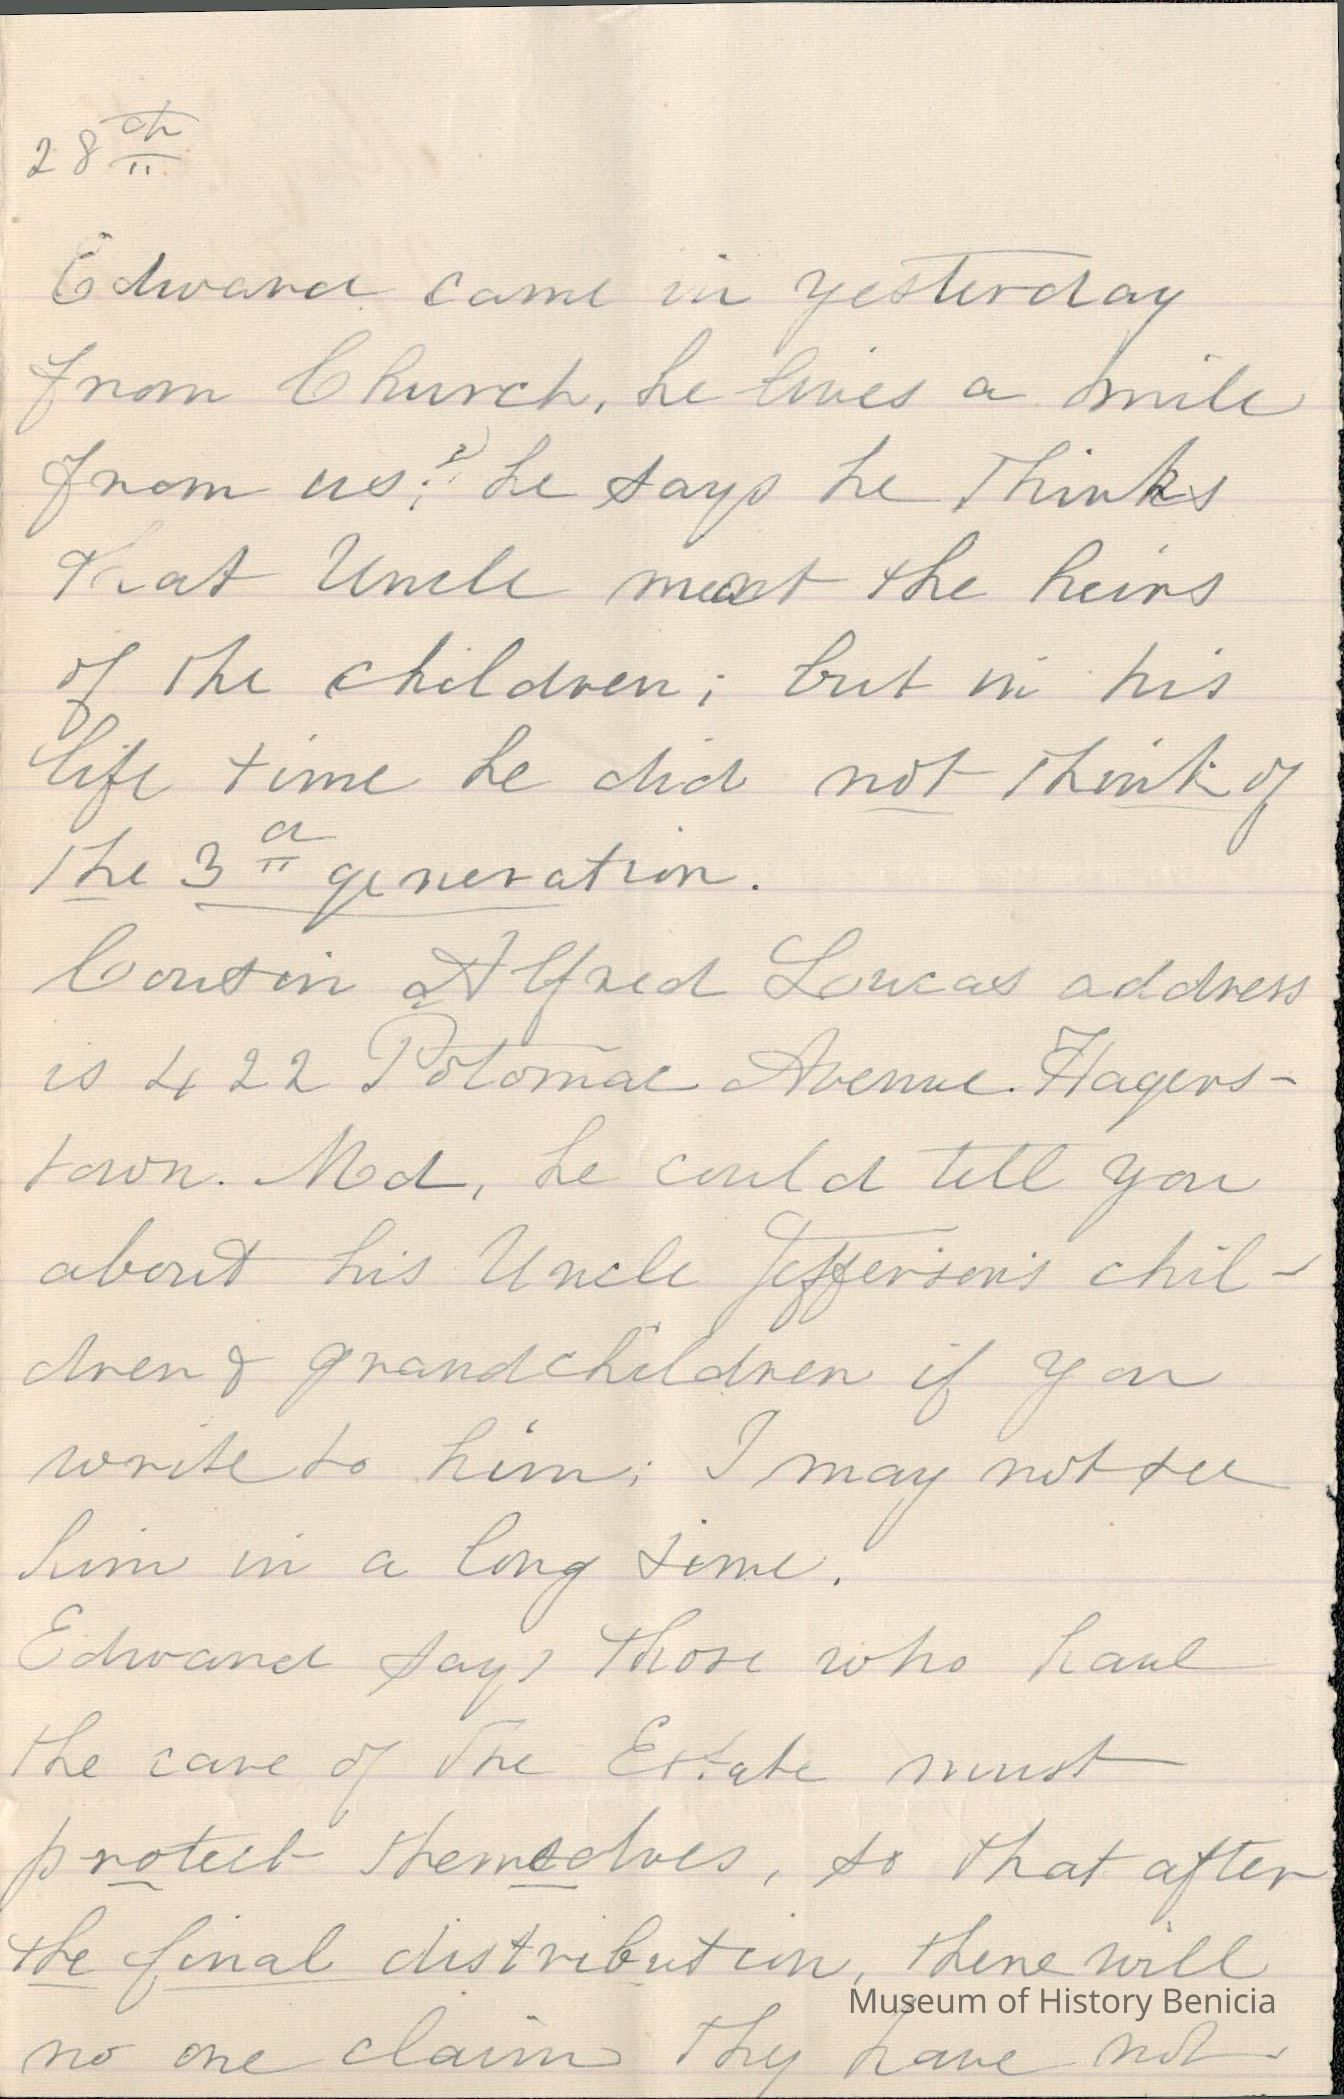 28th
Edward came in yesterday
from Church, he lives a mile
from us; he says he thinks
that Uncle meant the heirs
of the children; but in his
life time he did not think of
the 3d generation.
Cousin Alfred Lucas address
is 422 Potomac Avenue. Hagers-
town. Md, he could tell you
about his Uncle Jefferson's chil-
dren & grandchildren if you
write to him; I may not see
him in a long time.
Edward says those who have
the care of the Estate must
protect themselves, so that after
the final distribution, there will
no one claim thy have not
Museum of History Benicia